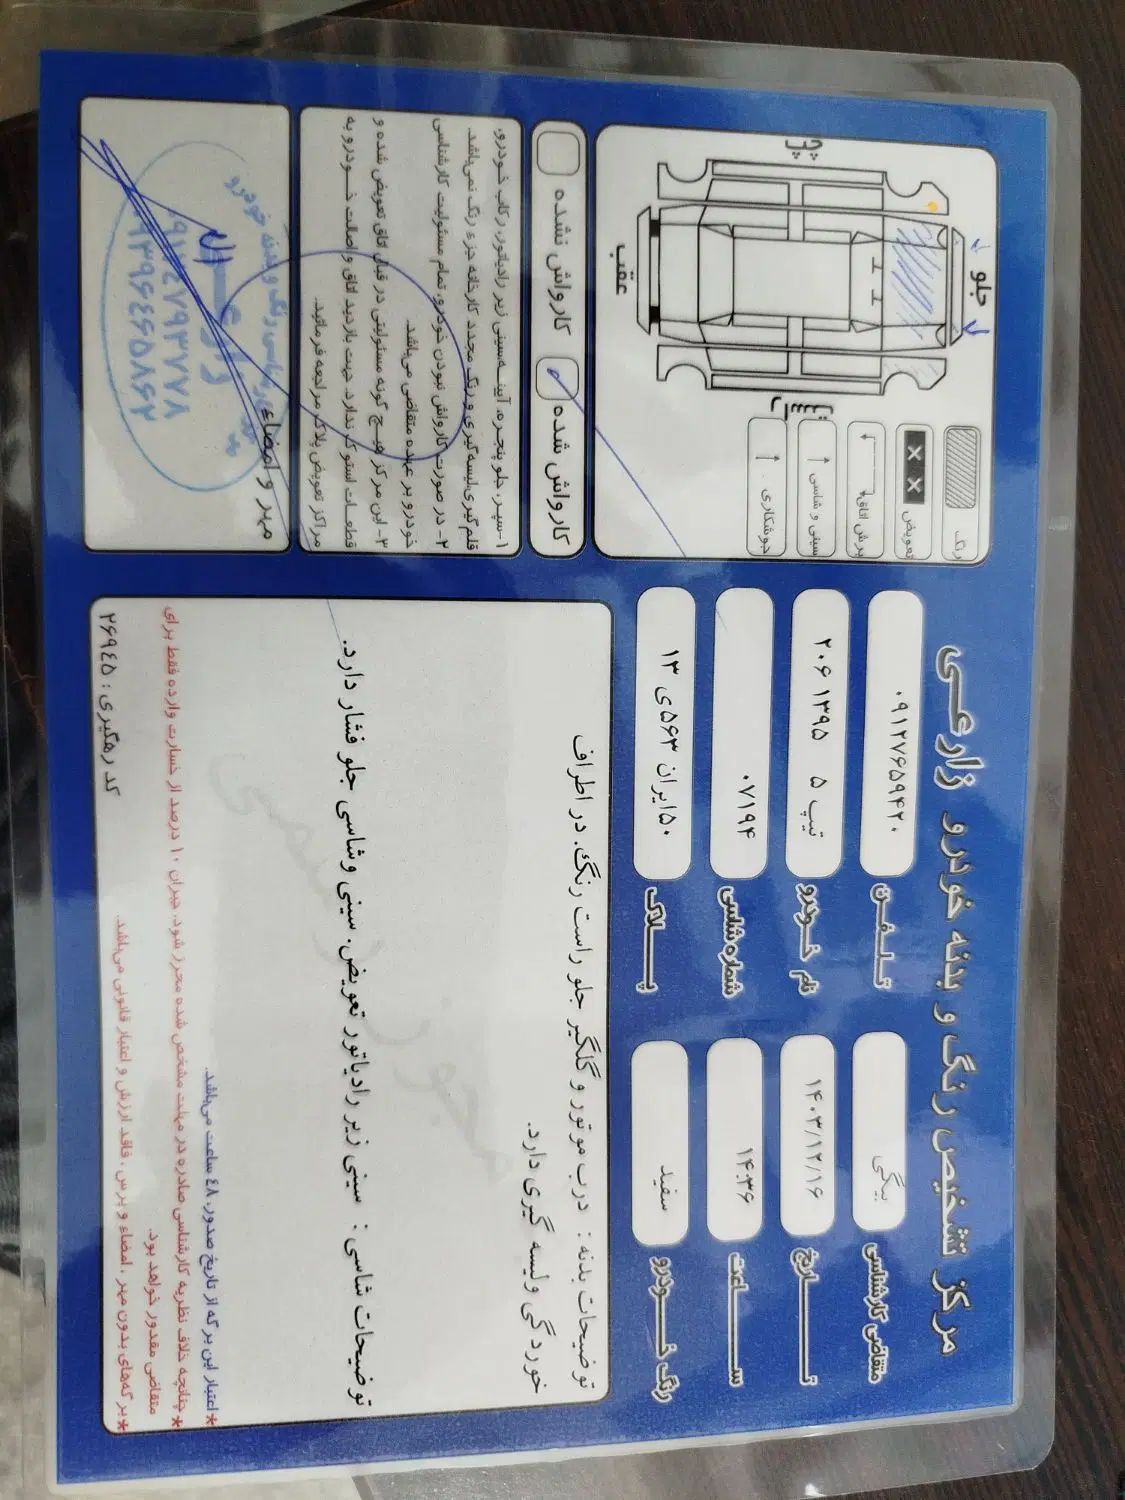 مرکز تشخیص رنگ و بدنه خودرو زارعی
متقاضی کارشناسی
بیگی
تلفن
۰۹۱۲۷۶۵۹۴۲۰
تاریخ
۱۴۰۳/۱۲/۱۶
نام خودرو
۲۰۶ ۱۳۹۵ تیپ ۵
ساعت
۱۴:۳۶
شماره شاسی
۰۷۱۹۴
رنگ خودرو
سفید
پلاک
۵۰ایران ۵۶۳ی ۱۳
توضیحات بدنه : درب موتور و گلگیر جلو راست رنگ. در اطراف
خوردگی ولیسه گیری دارد.
توضیحات شاسی : سینی زیر رادیاتور تعویض. سینی وشاسی جلو فشار دارد.
مجوز رسمی
*اعتبار این برگه از تاریخ صدور، ٤٨ ساعت می‌باشد.
*چنانچه خلاف نظریه کارشناسی صادره در مهلت مشخص شده محرز شود، جبران ۱۰ درصد از خسارت وارده فقط برای
متقاضی مقدور خواهد بود.
*برگه‌های بدون مهر ، امضاء و پرس ، فاقد ارزش و اعتبار قانونی می‌باشد.
کد رهگیری : ۲۶۹٤۵
رنگ
تعویض
برش اتاق
سینی و شاسی
جوشکاری
جلو
ل ل
عقب
چپ
راست
کارواش شده
کارواش نشده
۱-سپر، جلو پنجره، آینه، سینی زیر رادیاتور، رکاب خودرو،
قلم گیری،لیسه گیری و رنگ مجدد کارخانه جزء رنگ نمی‌باشد.
۲- در صورت کارواش نبودن خودرو، تمام مسئولیت کارشناسی
خودرو بر عهده متقاضی می‌باشد.
۳- این مرکز هیچ گونه مسئولیتی در قبال اتاق تعویض شده و
قطعات استوک ندارد، جهت بازدید اتاق و اصالت خودرو به
مراکز تعویض پلاک مراجعه فرمائید.
مهر و امضاء
زارعی